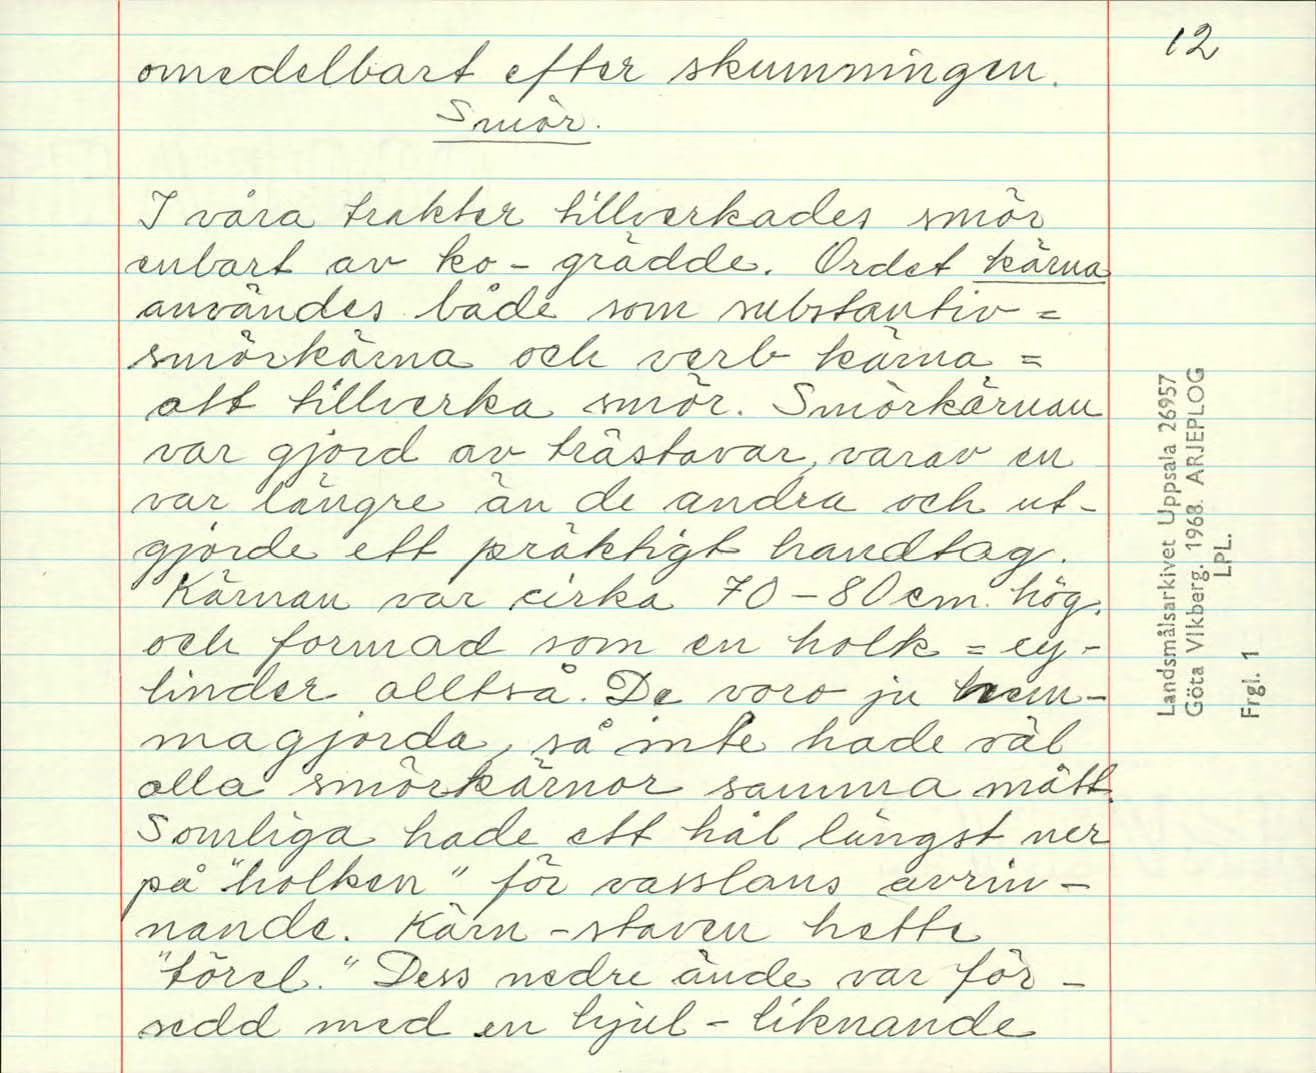 12
omedelbart efter skumningen.
Smör.
I våra trakter tillverkades smör
enbart av ko-grädde. Ordet kärna
användes både som substantiv =
smörkärna och verb kärna =
att tillverka smör. Smörkärnan
var gjord av trästavar, varav en
var längre än de andra och ut-
gjorde ett präktigt handtag.
Kärnan var cirka 70-80 cm. hög.
och formad som en holk = cy-
linder alltså. De voro ju hem-
magjorda, så inte hade väl
alla smörkärnor samma mått.
Somliga hade ett hål längst ner
på "holken" för vasslans avrin-
nande. Kärn-staven hette
"törel." Dess nedre ände var för-
sedd med en hjul-liknande
Landsmålsarkivet Uppsala 26957
Göta Vikberg. 1968. ARJEPLOG
LPL.
Frgl. 1